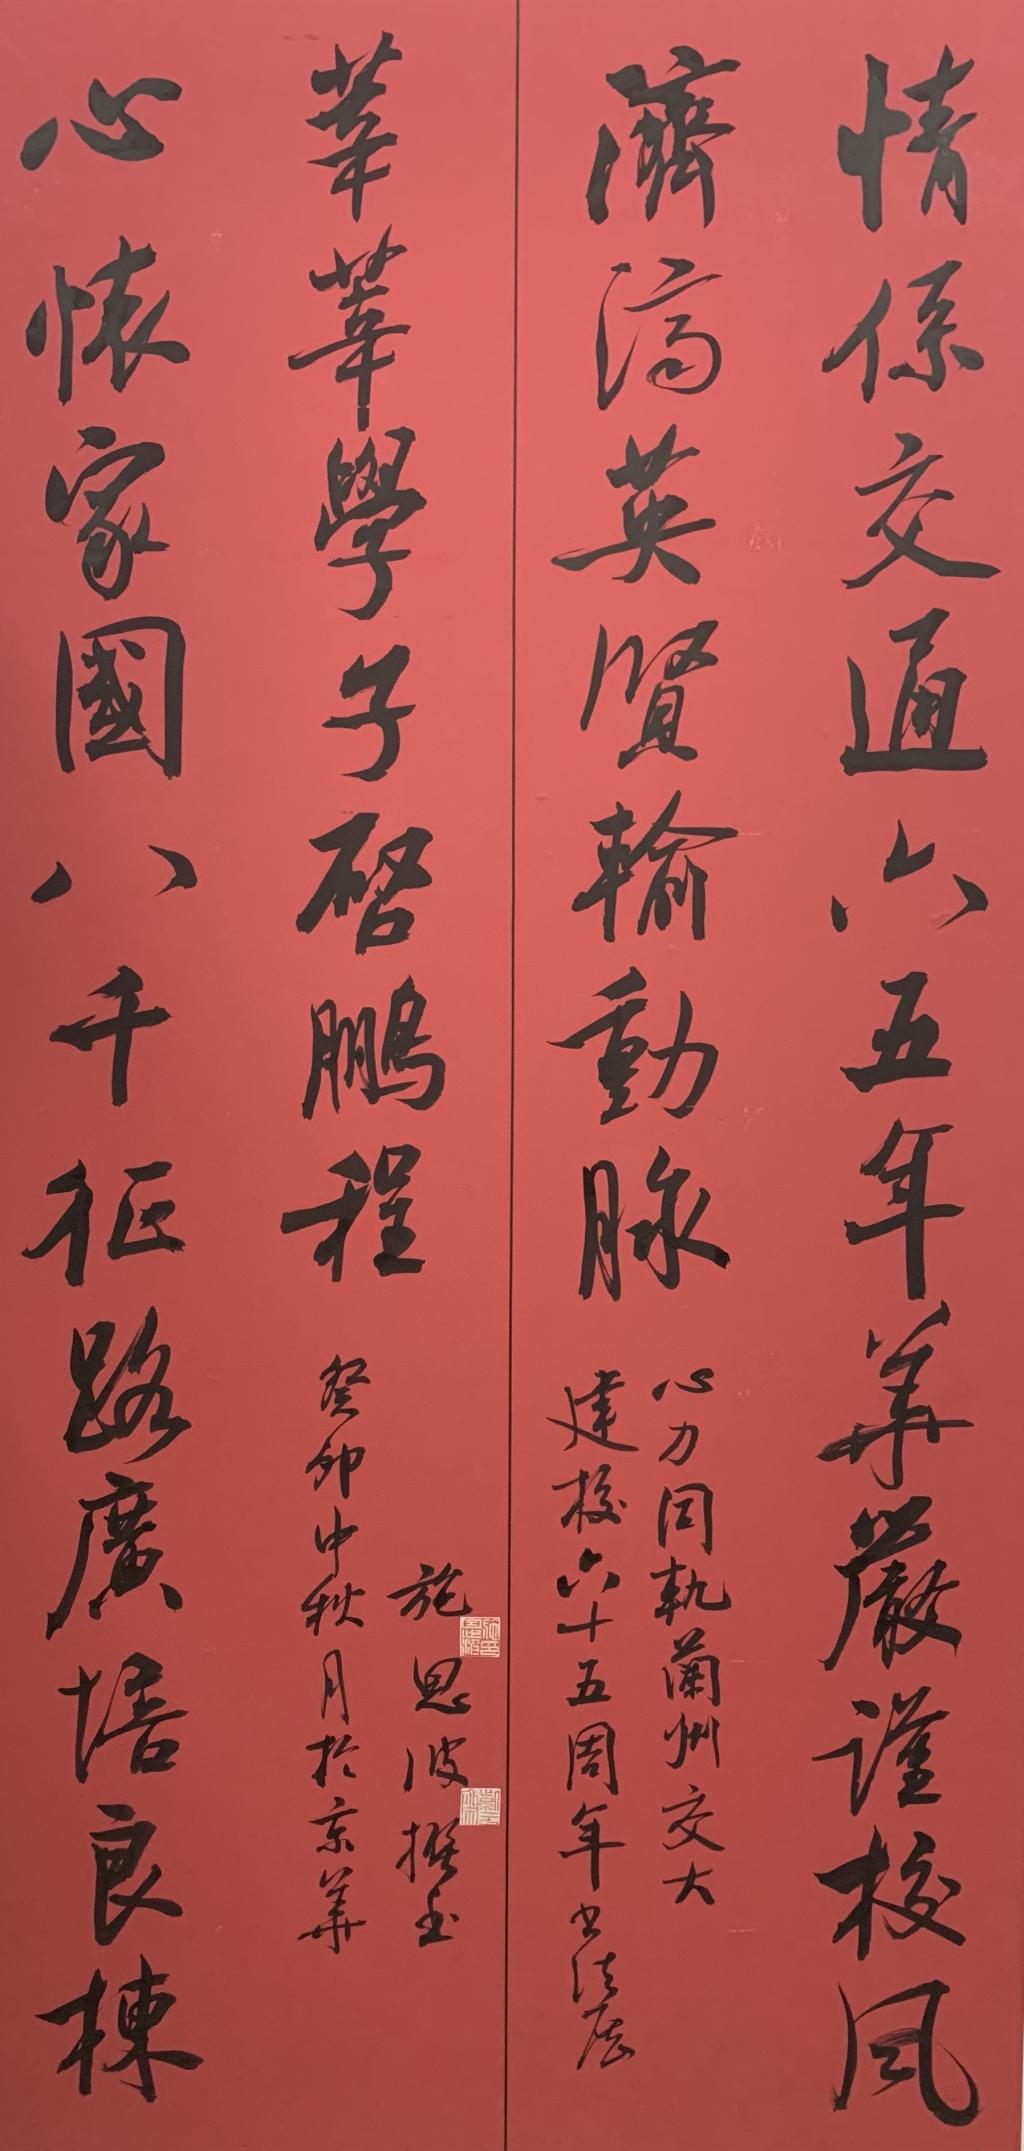 情係交通六五年華嚴謹校風
濟濟英賢輸動脉
心力同軌蘭州交大
建校六十五周年书法展
心懷家國八千征路廣培良棟
莘莘學子啓鵬程
癸卯中秋月於京華
施思波撰书